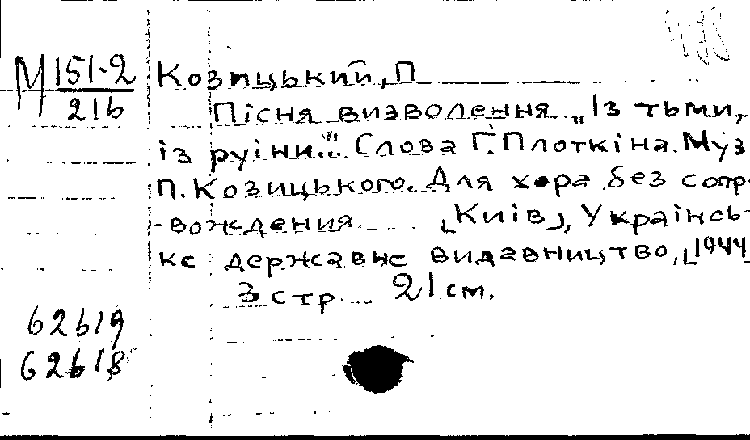 М 151-2 Козицький, П
216 Пісня визволення „Із тьми,
із руїни..." Слова Г. Плоткіна. Муз
П. Козицького. Для хора без сопр-
-вождения [Київ], Українсь-
ке державне видавництво, [1944]
3 стр. 21 см.
62619
62618